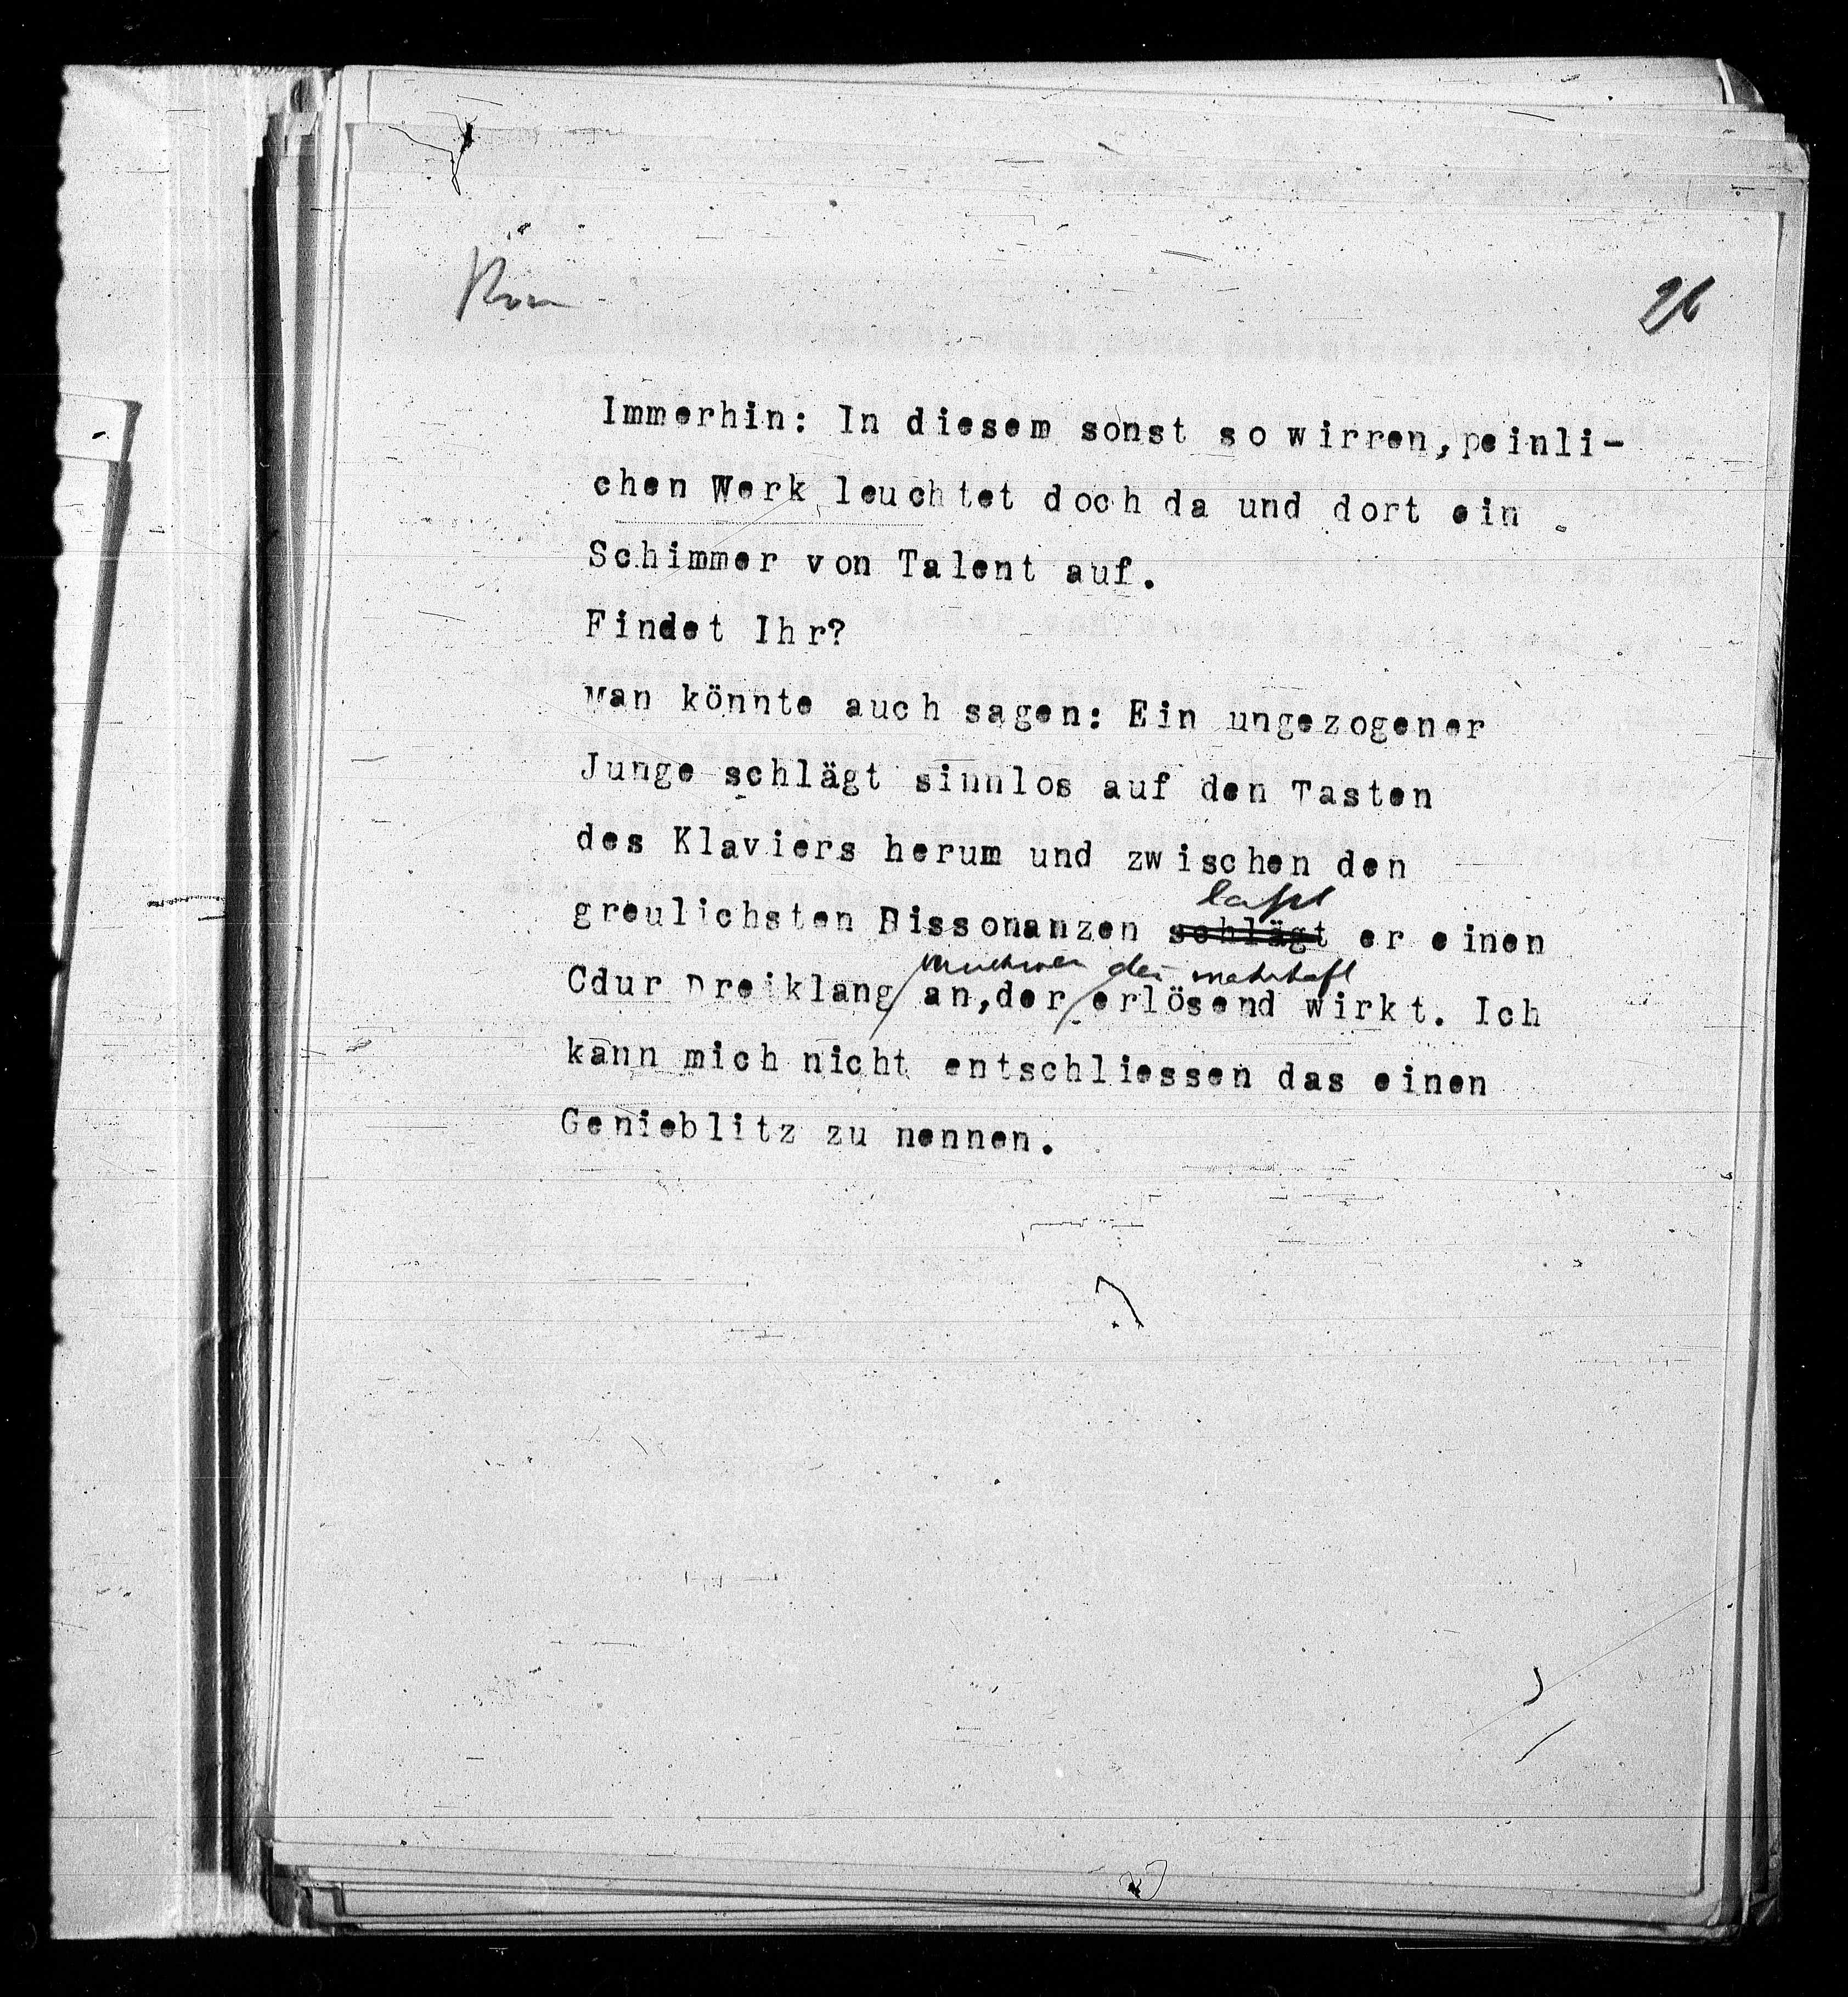 26
Immerhin: In diesem sonst so wirren, peinli-
chen Werk leuchtet doch da und dort ein
Schimmer von Talent auf.
Findet Ihr?
Man könnte auch sagen: Ein ungezogener
Junge schlägt sinnlos auf den Tasten
des Klaviers herum und zwischen den
läßt
greulichsten Dissonanzen schlägt er einen
der wahrhaft
Cdur Dreiklang an, der erlösend wirkt. Ich
kann mich nicht entschliessen das einen
Genieblitz zu nennen.